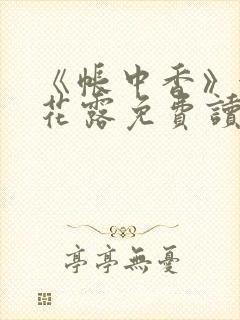 《帳中香》
花露免費讀
亭亭無憂